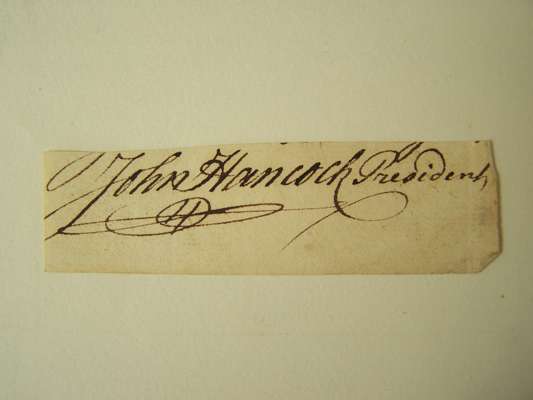 John Hancock President,